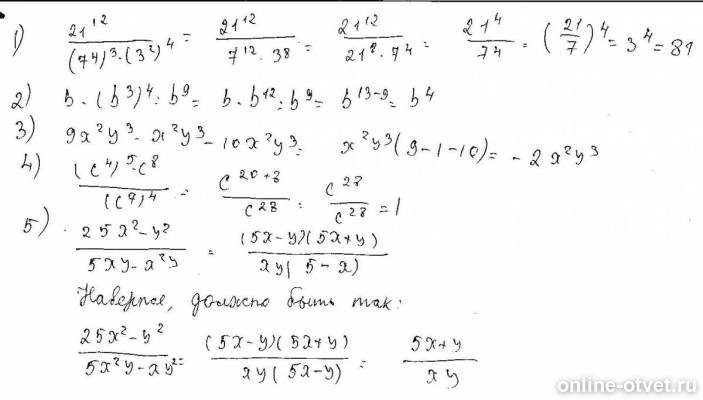 1) 21^12 / ((7^4)^3 · (3^2)^4) = 21^12 / (7^12 · 3^8) = 21^12 / (21^8 · 7^4) = 21^4 / 7^4 = (21/7)^4 = 3^4 = 81
2) b · (b^3)^4 : b^9 = b · b^12 : b^9 = b^(13-9) = b^4
3) 9x^2y^3 - x^2y^3 - 10x^2y^3 = x^2y^3 (9-1-10) = -2x^2y^3
4) ((c^4)^5 · c^8) / (c^7)^4 = c^(20+8) / c^28 = c^28 / c^28 = 1
5) (25x^2 - y^2) / (5xy - x^2y) = ((5x-y)(5x+y)) / (xy(5-x))
Наверное, должно быть так:
(25x^2 - y^2) / (5x^2y - xy^2) = ((5x-y)(5x+y)) / (xy(5x-y)) = (5x+y) / (xy)
online-otvet.ru